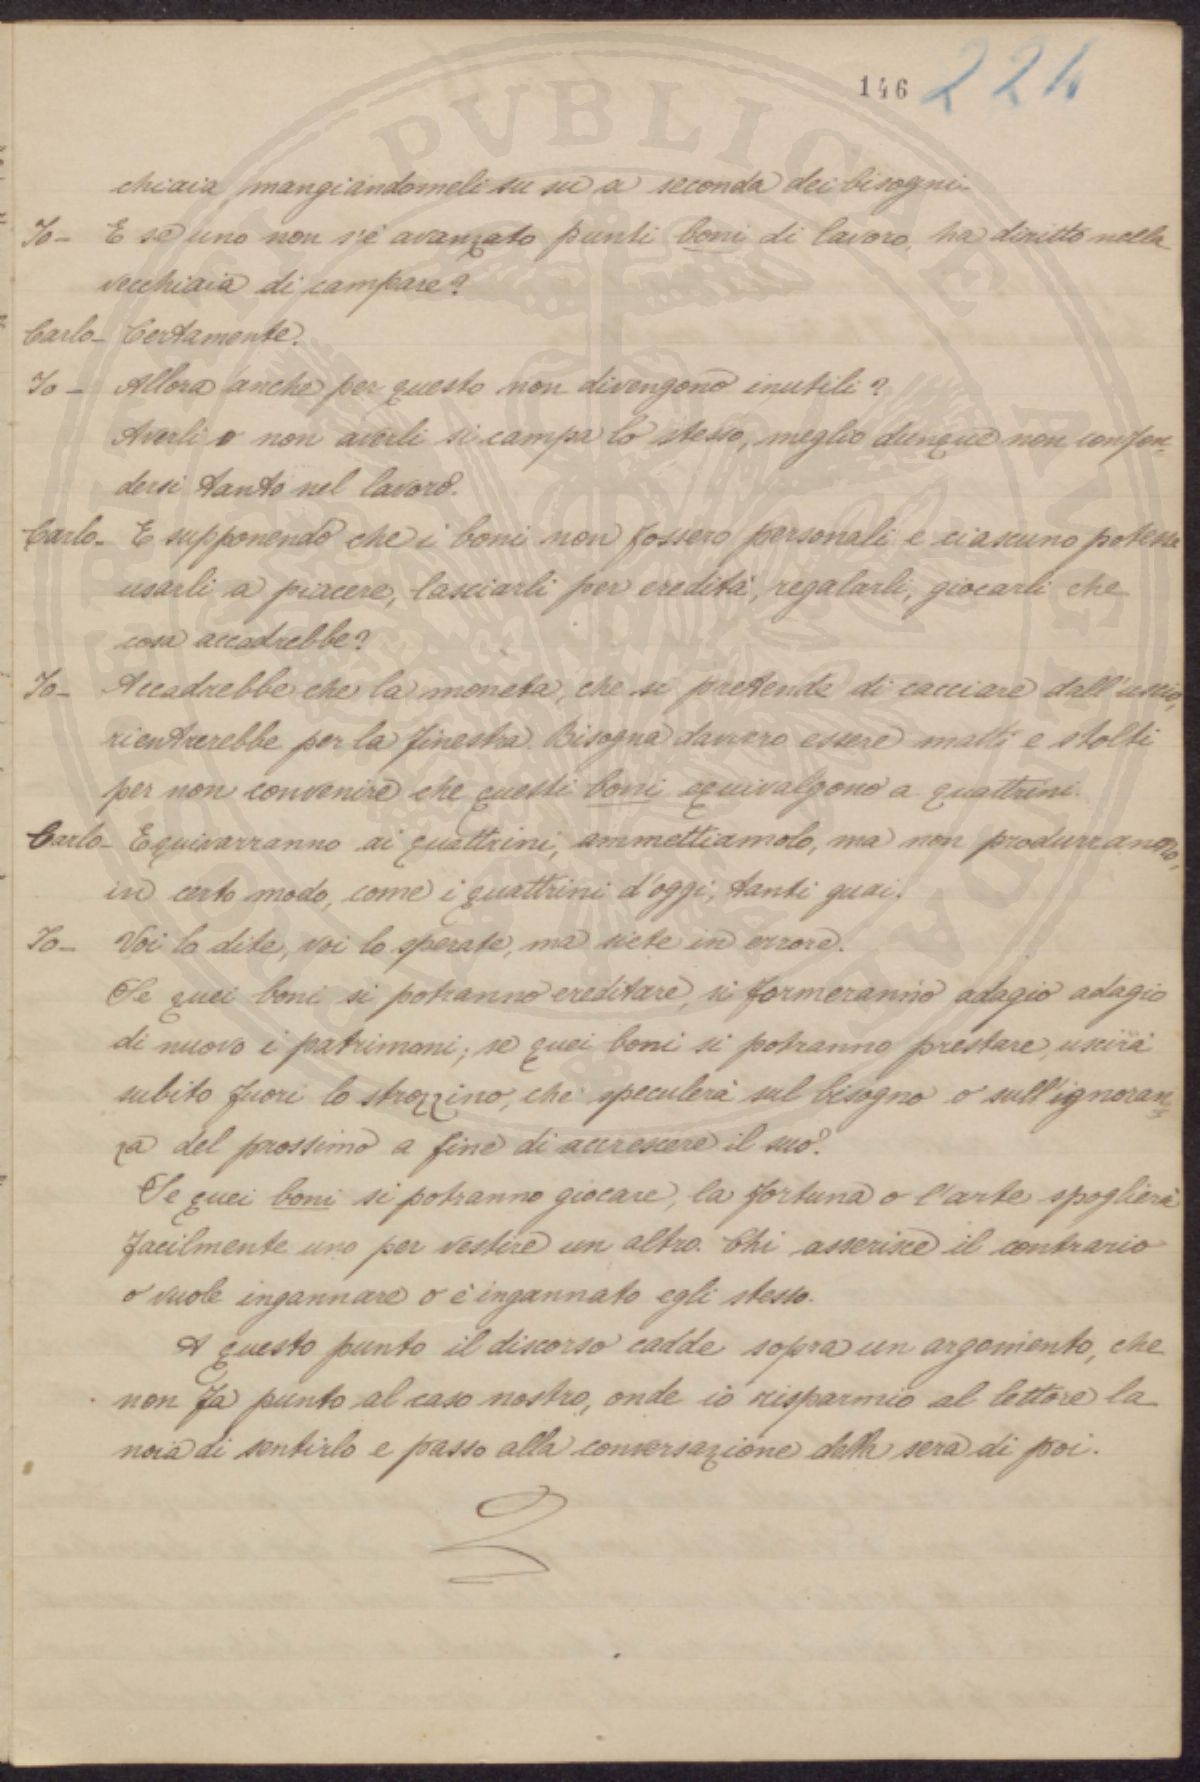 146 224
chiaia mangiandomeli su su a seconda dei bisogni.
Io- E se uno non s'è avanzato punti boni di lavoro, ha diritto nella
vecchiaia di campare?
Carlo- Certamente.
Io- Allora anche per questo non divengono inutili?
Averli o non averli si campa lo stesso, meglio dunque non confon-
dersi tanto nel lavoro.
Carlo- E supponendo che i boni non fossero personali e ciascuno potesse
usarli a piacere, lasciarli per eredità, regalarli, giocarli che
cosa accadrebbe?
Io- Accadrebbe che la moneta, che si pretende di cacciare dall'uscio,
rientrerebbe per la finestra. Bisogna davvero essere matti e stolti
per non convenire che questi boni equivalgono a quattrini.
Carlo- Equivarranno ai quattrini, ammettiamolo, ma non produrranno,
in certo modo, come i quattrini d'oggi, tanti guai.
Io- Voi lo dite, voi lo sperate, ma siete in errore.
Se quei boni si potranno ereditare, si formeranno adagio adagio
di nuovo i patrimoni; se quei boni si potranno prestare, uscirà
subito fuori lo strozzino, che speculerà sul bisogno o sull'ignoran-
za del prossimo a fine di accrescere il suo.
Se quei boni si potranno giocare, la fortuna o l'arte spoglierà
facilmente uno per vestire un altro. Chi asserisce il contrario
o vuole ingannare o è ingannato egli stesso.
A questo punto il discorso cadde sopra un argomento, che
non fa punto al caso nostro, onde io risparmio al lettore la
noia di sentirlo e passo alla conversazione della sera di poi.